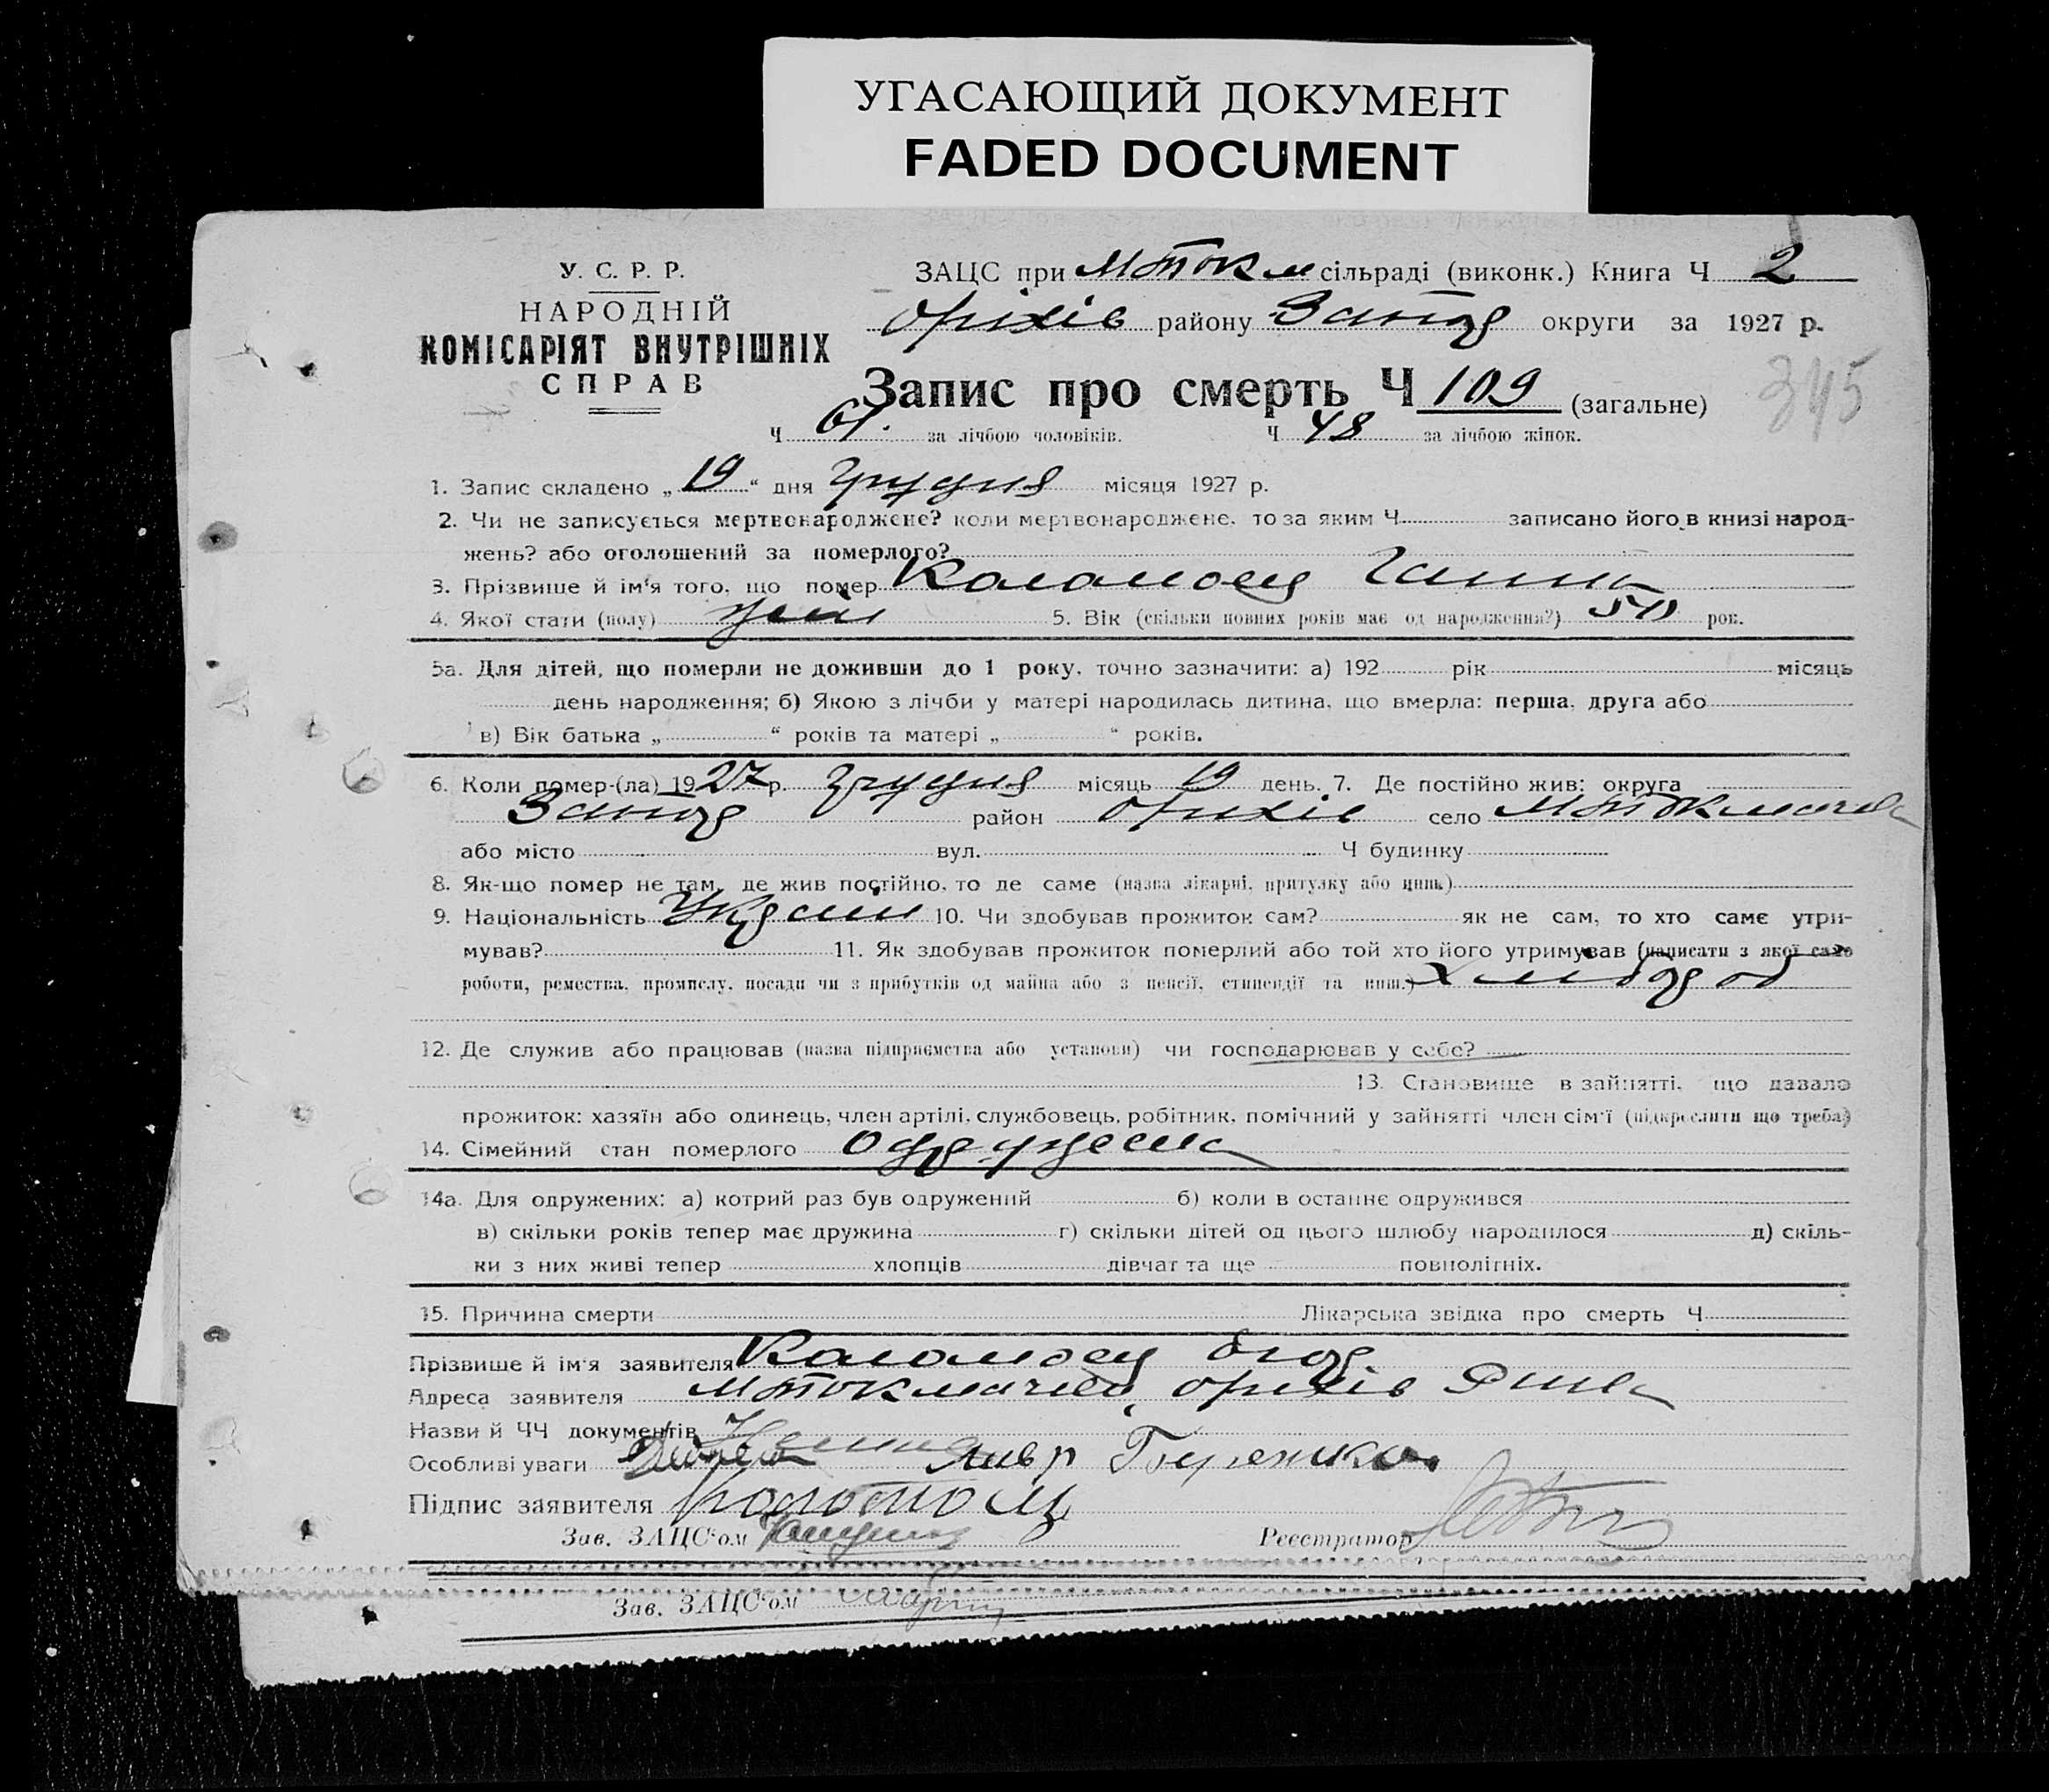 УГАСАЮЩИЙ ДОКУМЕНТ
FADED DOCUMENT
У. С. Р. Р.
НАРОДНІЙ
КОМІСАРІЯТ ВНУТРІШНІХ
СПРАВ
ЗАЦС при МТокм сільраді (виконк.) Книга Ч 2
Оріхів району Запор округи за 1927 р.
Запис про смерть Ч 109 (загальне)
345
Ч 61. за лічбою чоловіків. Ч 48 за лічбою жінок.
1. Запис складено „19“ дня грудня місяця 1927 р.
2. Чи не записується мертвонароджене? коли мертвонароджене, то за яким Ч записано його в книзі народ-
жень? або оголошений за померлого?
3. Прізвише й ім'я того, що помер Коломоец Ганна
4. Якої стати (полу) жін 5. Вік (скільки повних років має од народження?) 50 рок.
5а. Для дітей, що померли не доживши до 1 року, точно зазначити: а) 192 рік місяць
день народження; б) Якою з лічби у матері народилась дитина, що вмерла: перша, друга або
в) Вік батька „ “ років та матері „ “ років.
6. Коли помер-(ла) 1927 р. грудня місяць 19 день. 7. Де постійно жив: округа
Запор район Оріхів село МТокмачка
або місто вул. Ч будинку
8. Як-що помер не там, де жив постійно, то де саме (назва лікарні, притулку або инш.)
9. Національність Україн 10. Чи здобував прожиток сам? як не сам, то хто саме утри-
мував? 11. Як здобував прожиток померлий або той хто його утримував (написати з якої само
роботи, ремества, промислу, посади чи з прибутків од майна або з пенсії, стипендії та инш.) хлібороб
12. Де служив або працював (назва підприємства або установи) чи господарював у себе?
13. Становище в зайнятті, що давало
прожиток: хазяїн або одинець, член артілі, службовець, робітник, помічний у зайнятті член сім'ї (підкреслити що треба)
14. Сімейний стан померлого Одружена
14а. Для одружених: а) котрий раз був одружений б) коли в останнє одружився
в) скільки років тепер має дружина г) скільки дітей од цього шлюбу народилося д) скіль-
ки з них живі тепер хлопців дівчат та ще повнолітніх.
15. Причина смерти Лікарська звідка про смерть Ч
Прізвише й ім'я заявителя Коломоец
Адреса заявителя МТокмачка, Оріхів
Назви й ЧЧ документів
Особливі уваги
Підпис заявителя
Зав. ЗАЦС'ом Реєстратор
Зав. ЗАЦС'ом